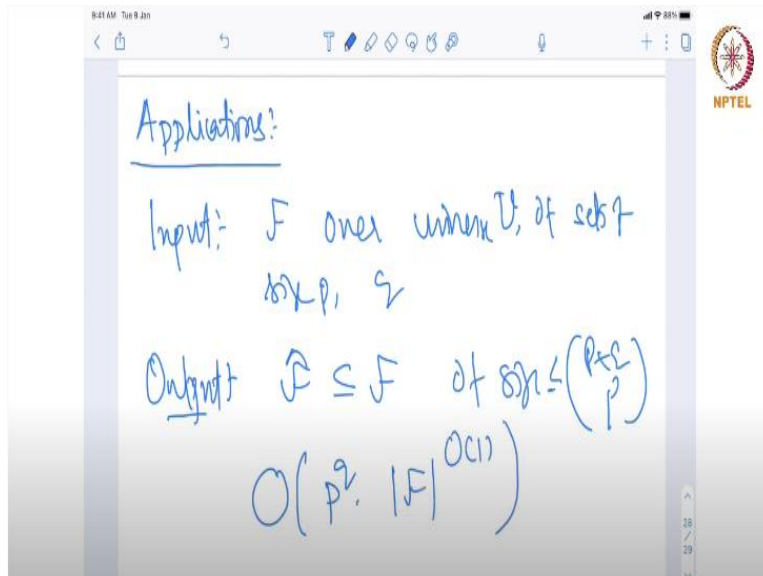 9:41 AM Tue 9 Jan
88%
NPTEL
Applications:
Input:- F over universe U, of sets of
size p, q
Output:- F̂ ⊆ F of size ≤ (p+q p)
O(p^q. |F|^O(1))
28
/
29